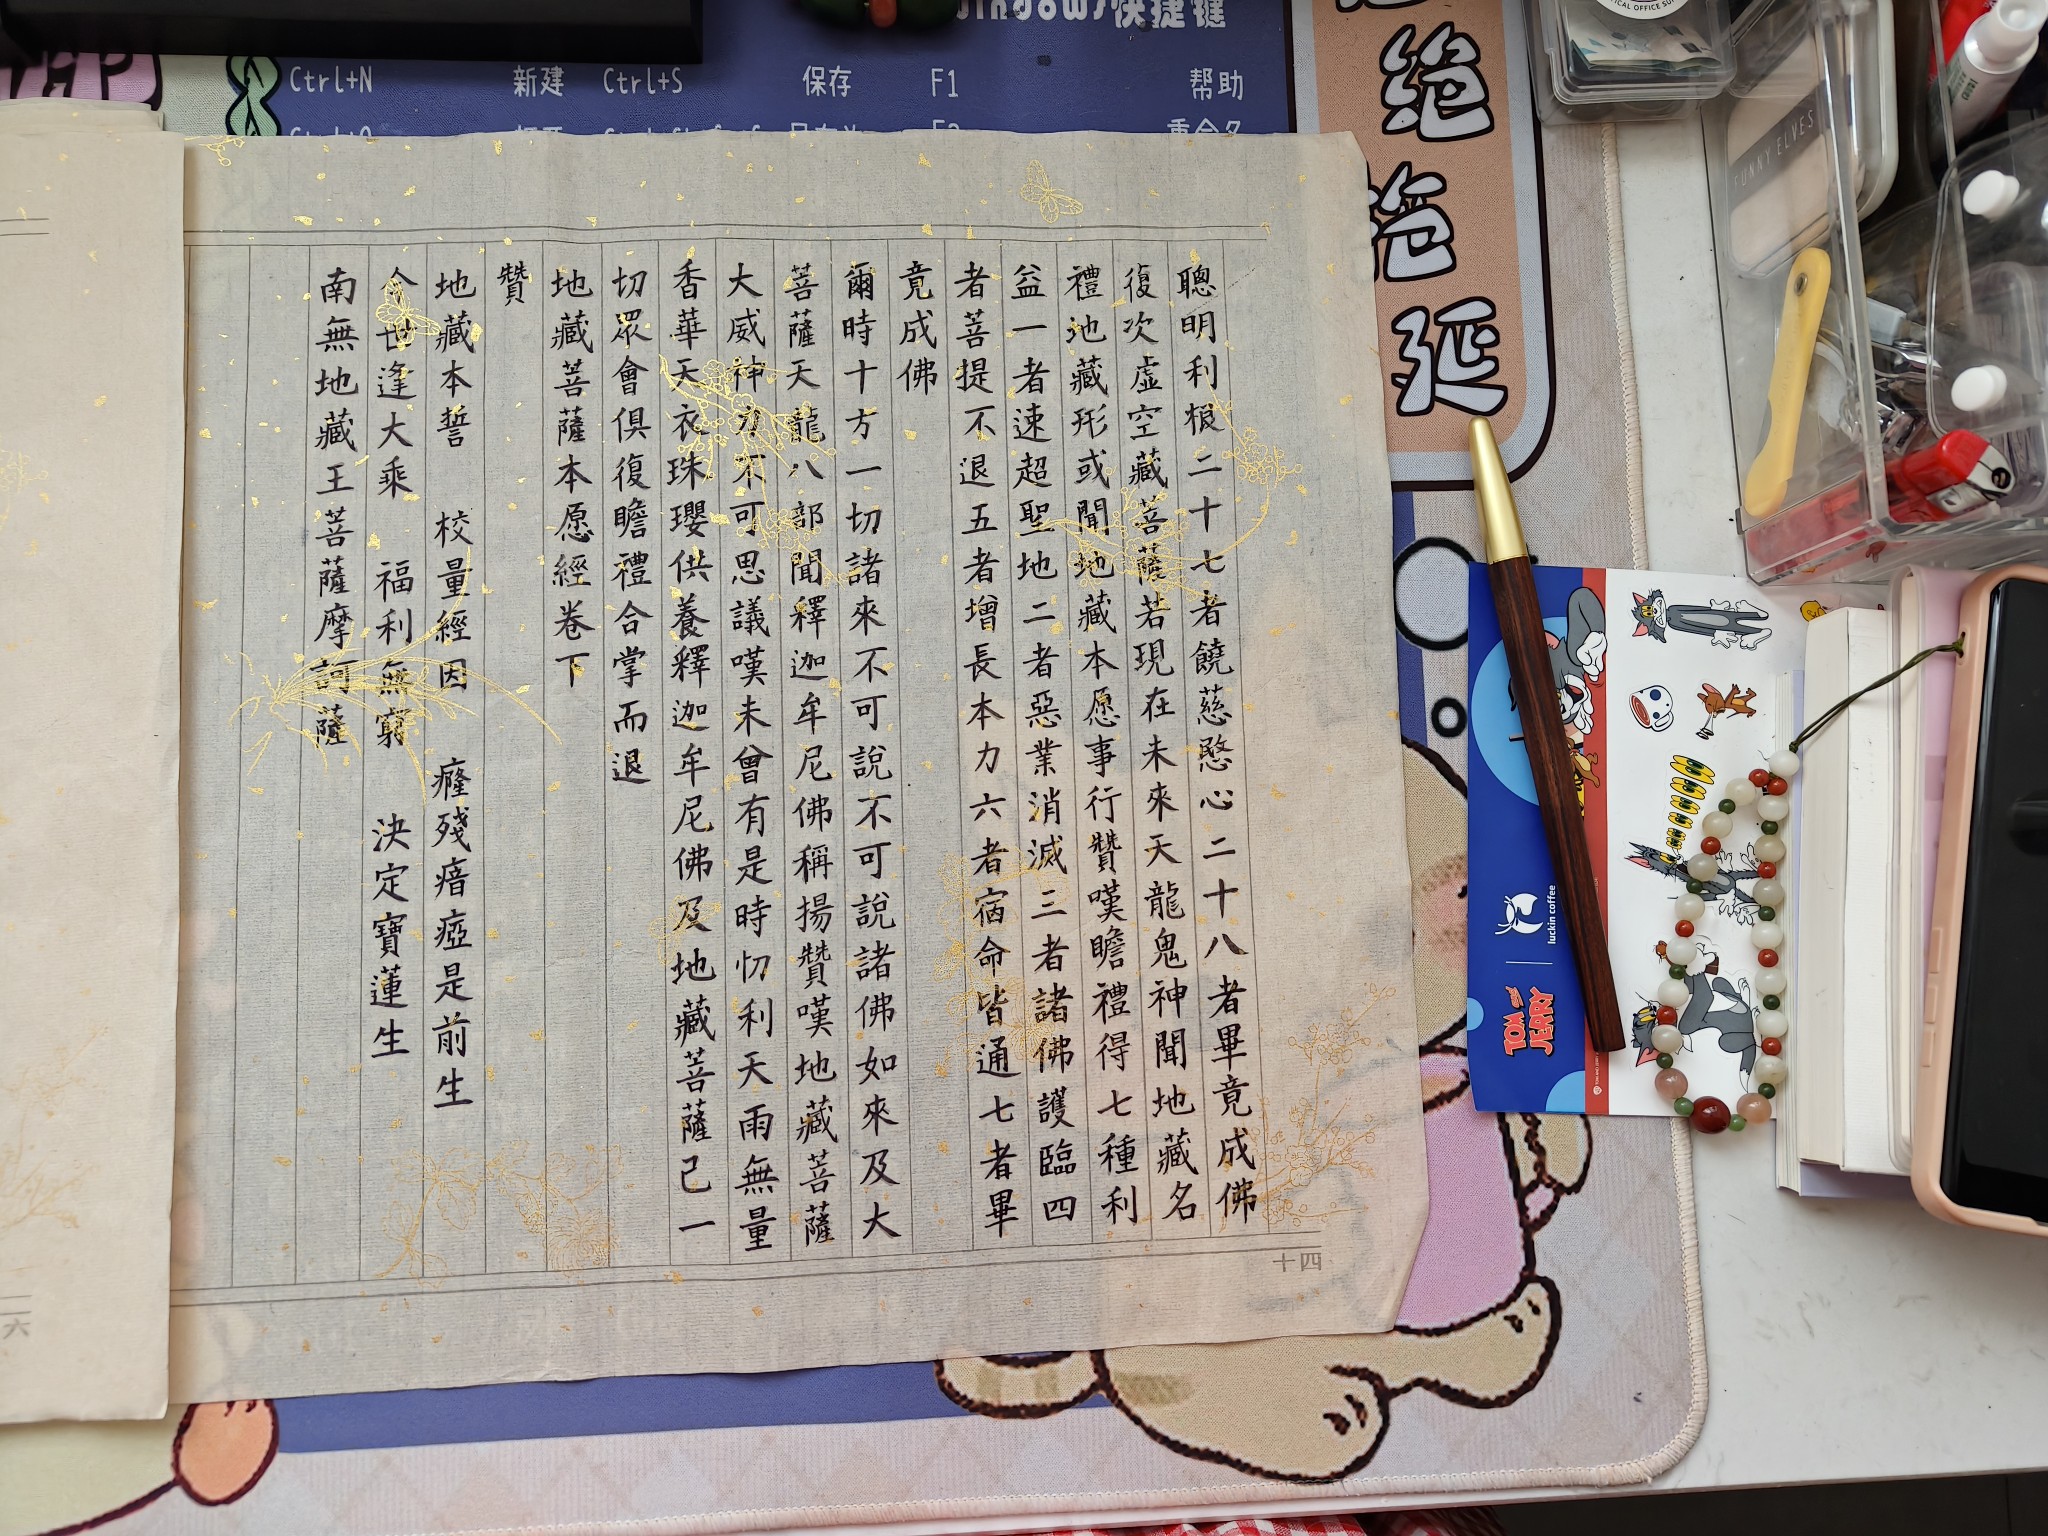 聰明利根二十七者饒慈愍心二十八者畢竟成佛
復次虛空藏菩薩若現在未來天龍鬼神聞地藏名
禮地藏形或聞地藏本愿事行贊嘆瞻禮得七種利
益一者速超聖地二者惡業消滅三者諸佛護臨四
者菩提不退五者增長本力六者宿命皆通七者畢
竟成佛
爾時十方一切諸來不可說不可說諸佛如來及大
菩薩天龍八部聞釋迦牟尼佛稱揚贊嘆地藏菩薩
大威神力不可思議嘆未曾有是時忉利天雨無量
香華天衣珠瓔供養釋迦牟尼佛及地藏菩薩已一
切眾會俱復瞻禮合掌而退
地藏菩薩本愿經卷下
贊
地藏本誓 校量經因 癃殘瘖瘂是前生
今世逢大乘 福利無窮 決定寶蓮生
南無地藏王菩薩摩訶薩
十四
六
Windows快捷键
Ctrl+N 新建 Ctrl+S 保存 F1 帮助
绝
拖
延
FUNNY ELVES
luckin coffee
TOM AND JERRY